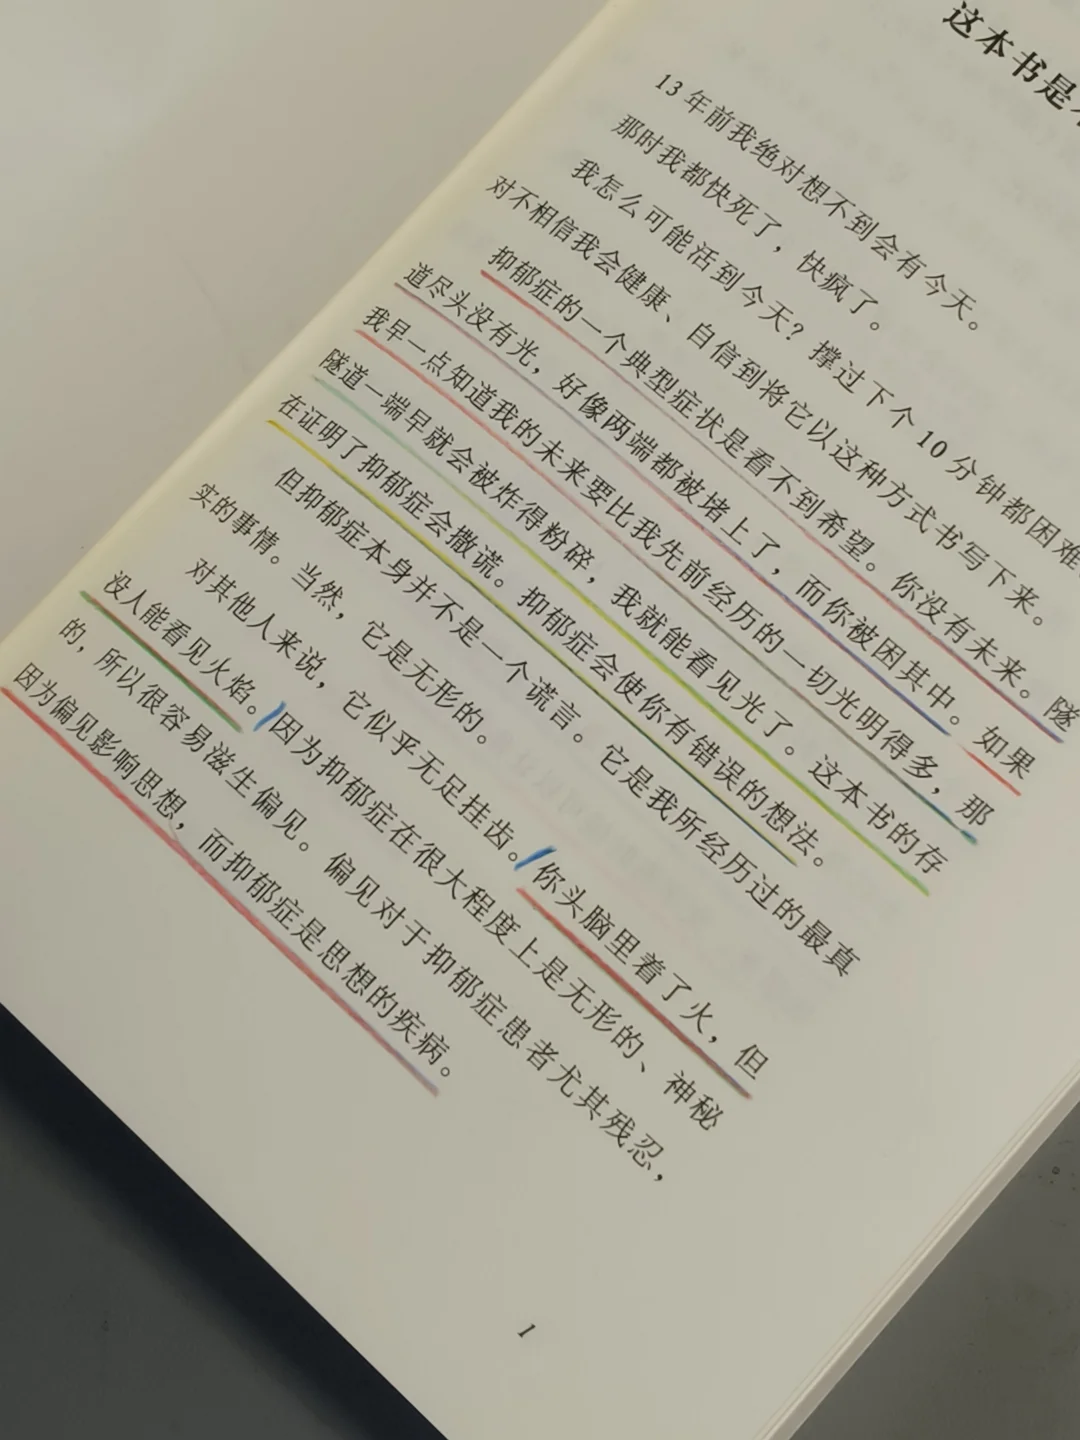 这本书是
13 年前我绝对想不到会有今天。
那时我都快死了，快疯了。
我怎么可能活到今天？撑过下个 10 分钟都困难
对不相信我会健康、自信到将它以这种方式书写下来。
抑郁症的一个典型症状是看不到希望。你没有未来。隧
道尽头没有光，好像两端都被堵上了，而你被困其中。如果
我早一点知道我的未来要比我先前经历的一切光明得多，那
隧道一端早就会被炸得粉碎，我就能看见光了。这本书的存
在证明了抑郁症会撒谎。抑郁症会使你有错误的想法。
但抑郁症本身并不是一个谎言。它是我所经历过的最真
实的事情。当然，它是无形的。
对其他人来说，它似乎无足挂齿。你头脑里着了火，但
没人能看见火焰。因为抑郁症在很大程度上是无形的、神秘
的，所以很容易滋生偏见。偏见对于抑郁症患者尤其残忍，
因为偏见影响思想，而抑郁症是思想的疾病。
1